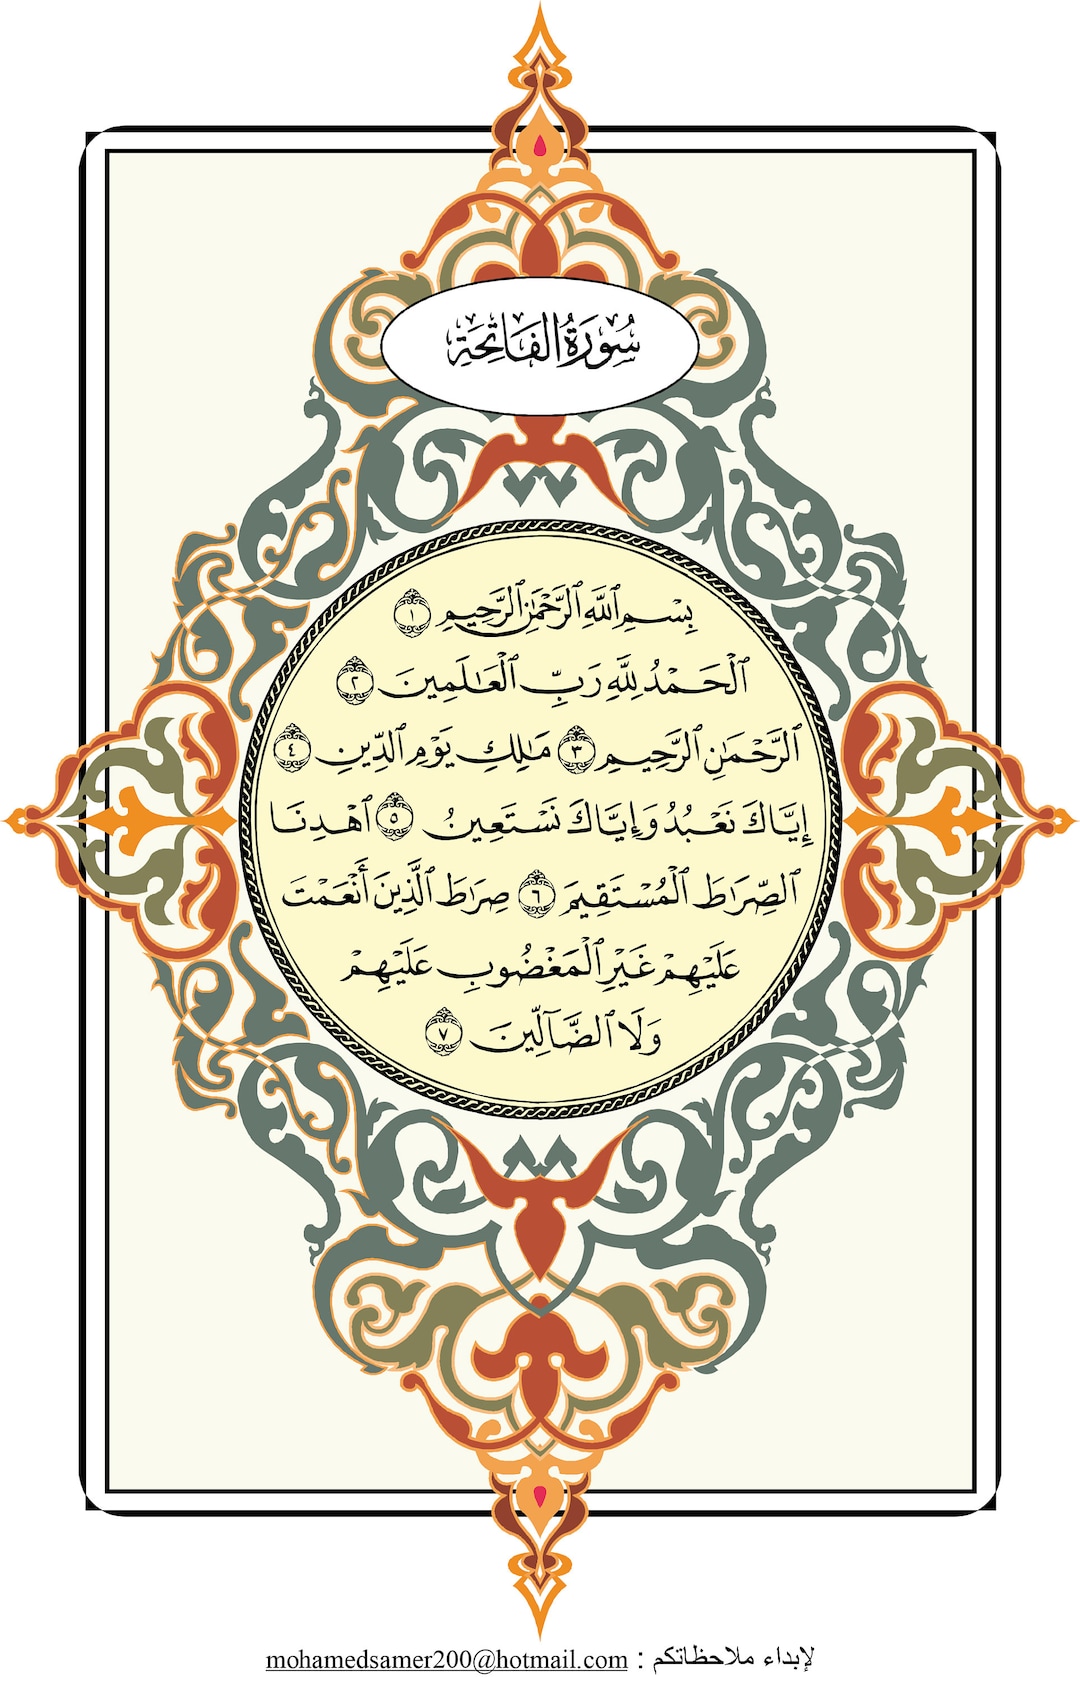 سُورَةُ الفَاتِحَةِ
بِسْمِ ٱللَّهِ ٱلرَّحْمَٰنِ ٱلرَّحِيمِ ١
ٱلْحَمْدُ لِلَّهِ رَبِّ ٱلْعَٰلَمِينَ ٢
ٱلرَّحْمَٰنِ ٱلرَّحِيمِ ٣ مَٰلِكِ يَوْمِ ٱلدِّينِ ٤
إِيَّاكَ نَعْبُدُ وَإِيَّاكَ نَسْتَعِينُ ٥ ٱهْدِنَا
ٱلصِّرَٰطَ ٱلْمُسْتَقِيمَ ٦ صِرَٰطَ ٱلَّذِينَ أَنْعَمْتَ
عَلَيْهِمْ غَيْرِ ٱلْمَغْضُوبِ عَلَيْهِمْ
وَلَا ٱلضَّآلِّينَ ٧
لإبداء ملاحظاتكم : mohamedsamer200@hotmail.com